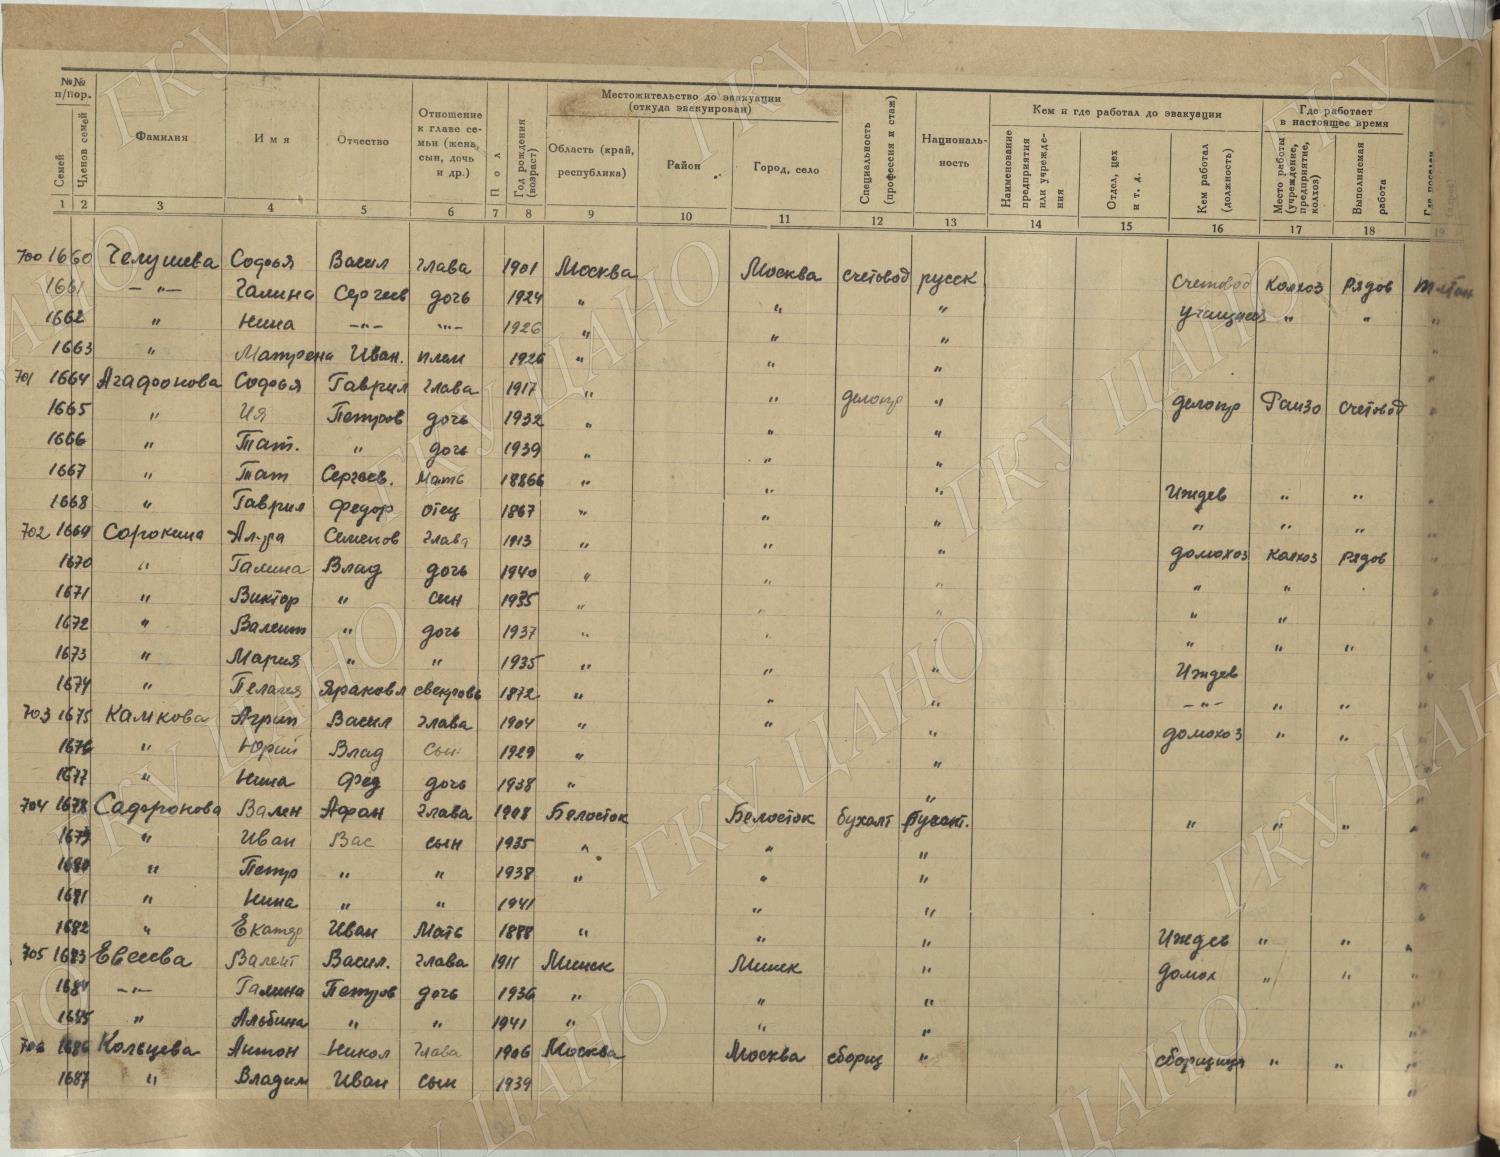 №№ п/пор.
Семей
Членов семей
Фамилия
Имя
Отчество
Отношение к главе семьи (жена, сын, дочь и др.)
Пол
Год рождения (возраст)
Местожительство до эвакуации (откуда эвакуирован)
Область (край, республика)
Район
Город, село
Специальность (профессия и стаж)
Националь-ность
Кем и где работал до эвакуации
Наименование предприятия или учрежде-ния
Отдел, цех и т. д.
Кем работал (должность)
Где работает в настоящее время
Место работы (учреждение, предприятие, колхоз)
Выполняемая работа
1 2 3 4 5 6 7 8 9 10 11 12 13 14 15 16 17 18 19
700 1660 Челушева Софья Васил глава 1901 Москва Москва счетовод русск Счетовод Колхоз Рядов
1661 —"— Галина Сергеев дочь 1924 " " " учащаяся " " "
1662 " Нина —"— —"— 1926 " " " "
1663 " Матрена Иван. плем 1926 " " " "
701 1664 Агафонова Софья Гаврил глава 1917 " " делопр " делопр Райзо счетовод
1665 " Ия Петров дочь 1932 " " "
1666 " Тат. " дочь 1939 " " "
1667 " Тат Сергеев. Мать 18866 " " " Иждев " " "
1668 " Гаврил Федор отец 1867 " " " " " " "
702 1669 Сорокина Ал-ра Семенов глава 1913 " " " домохоз Колхоз Рядов "
1670 " Галина Влад дочь 1940 " " " " " "
1671 " Виктор " сын 1935 " " " " " "
1672 " Валент " дочь 1937 " " " " " "
1673 " Мария " " 1935 " " " Иждев "
1674 " Пелагея свекровь 1872 " " " —"— " " "
703 1675 Камкова Агрип Васил глава 1904 " " " домохоз " " "
1676 " Юрий Влад сын 1929 " " "
1677 " Нина Фед дочь 1938 " " "
704 1678 Сафронова Вален Афан глава 1908 Белосток Белосток бухалт " " " "
1679 " Иван Вас сын 1935 " " " "
1680 " Петр " " 1938 " " " "
1681 " Нина " " 1941 " " "
1682 " Екатер Иван Мать 1888 " " " Иждев " " "
705 1683 Евсеева Валент Васил. глава 1911 Минск Минск " домох " " "
1684 —"— Галина Петров дочь 1936 " " " "
1685 " Альбина " " 1941 " " " "
706 1686 Кольцева Антон Никол глава 1906 Москва Москва сборщ " сборщица " " "
1687 " Владим Иван сын 1939 "
ГКУ ЦАНО